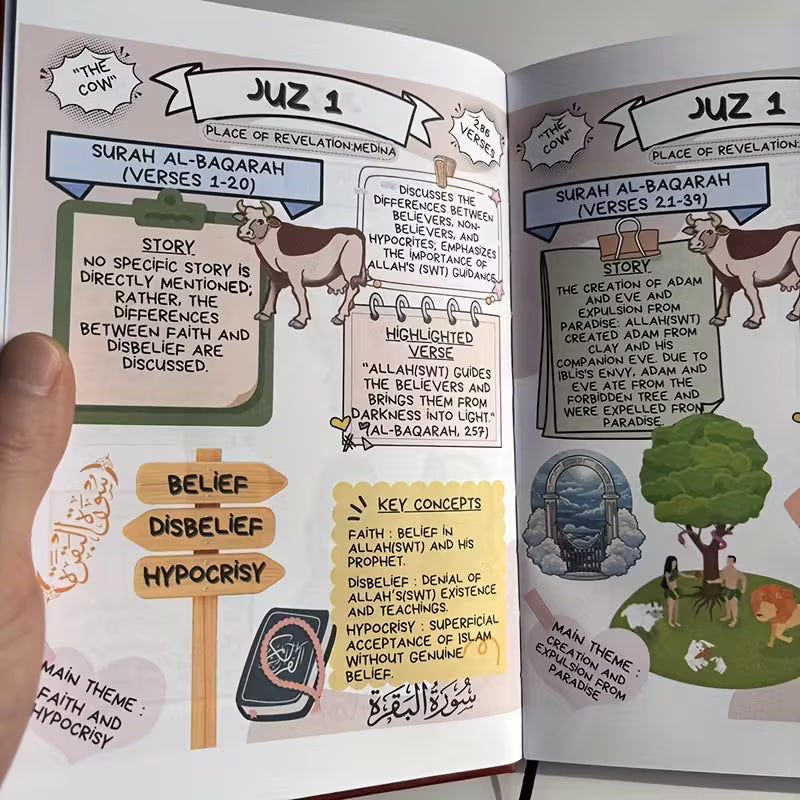 "THE
COW"
JUZ 1
PLACE OF REVELATION:MEDINA
286
VERSES
SURAH AL-BAQARAH
(VERSES 1-20)
STORY
NO SPECIFIC STORY IS
DIRECTLY MENTIONED;
RATHER, THE
DIFFERENCES
BETWEEN FAITH AND
DISBELIEF ARE
DISCUSSED.
DISCUSSES THE
DIFFERENCES BETWEEN
BELIEVERS, NON-
BELIEVERS, AND
HYPOCRITES; EMPHASIZES
THE IMPORTANCE OF
ALLAH'S (SWT) GUIDANCE
HIGHLIGHTED
VERSE
"ALLAH(SWT) GUIDES
THE BELIEVERS AND
BRINGS THEM FROM
DARKNESS INTO LIGHT."
(AL-BAQARAH, 257)
BELIEF
DISBELIEF
HYPOCRISY
سورة البقرة
KEY CONCEPTS
FAITH : BELIEF IN
ALLAH(SWT) AND HIS
PROPHET.
DISBELIEF : DENIAL OF
ALLAH'S(SWT) EXISTENCE
AND TEACHINGS.
HYPOCRISY : SUPERFICIAL
ACCEPTANCE OF ISLAM
WITHOUT GENUINE
BELIEF.
MAIN THEME :
FAITH AND
HYPOCRISY
سُورَةُ البَقَرَة
"THE
COW"
JUZ 1
PLACE OF REVELATION:
SURAH AL-BAQARAH
(VERSES 21-39)
STORY
THE CREATION OF ADAM
AND EVE AND
EXPULSION FROM
PARADISE: ALLAH(SWT)
CREATED ADAM FROM
CLAY AND HIS
COMPANION EVE. DUE TO
IBLIS'S ENVY, ADAM AND
EVE ATE FROM THE
FORBIDDEN TREE AND
WERE EXPELLED FROM
PARADISE.
MAIN THEME :
CREATION AND
EXPULSION FROM
PARADISE